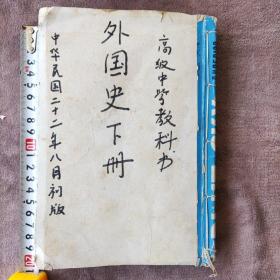 高级中学教科书
外国史下册
中华民国二十二年八月初版